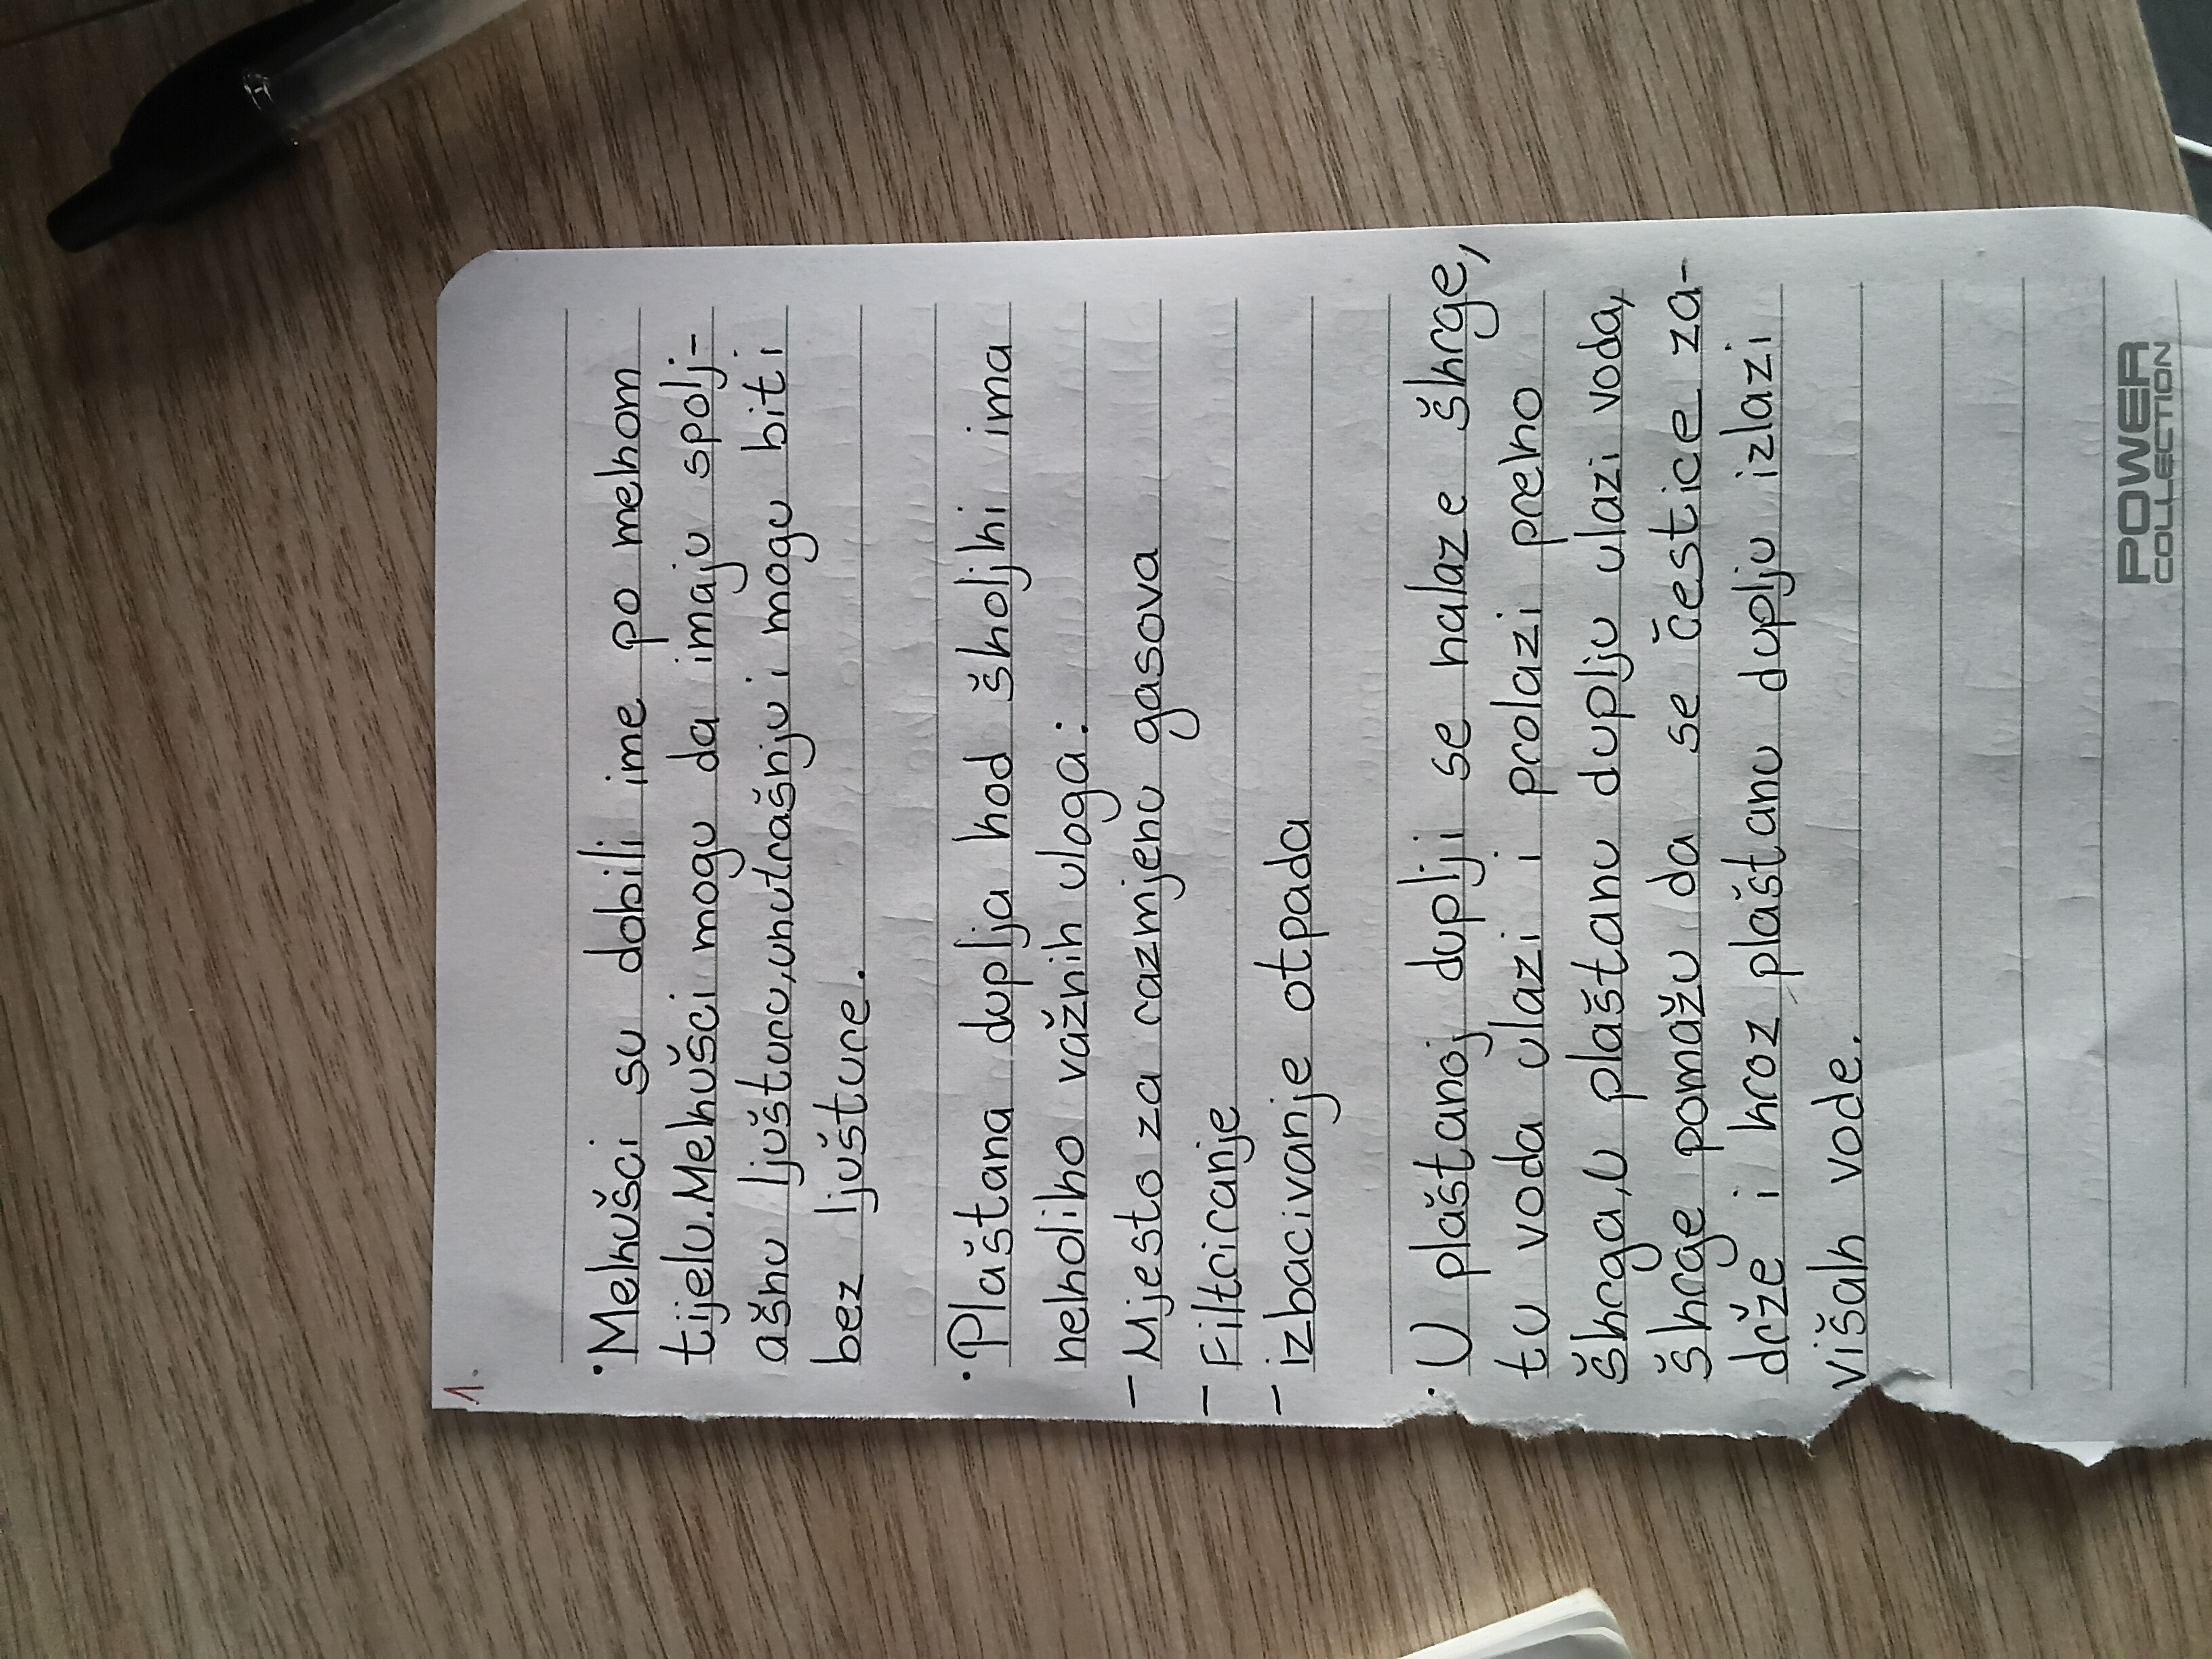 1.
• Mekušci su dobili ime po mekom
tijelu. Mekušci mogu da imaju spolj-
ašnu ljušturu, unutrašnju i mogu biti
bez ljušture.
• Plaštana duplja kod školjki ima
nekoliko važnih uloga:
- Mjesto za razmjenu gasova
- Filtriranje
- izbacivanje otpada
• U plaštanoj duplji se nalaze škrge,
tu voda ulazi i prolazi preko
škrga, u plaštanu duplju ulazi voda,
škrge pomažu da se čestice za-
drže i kroz plaštanu duplju izlazi
višak vode.
POWER
COLLECTION